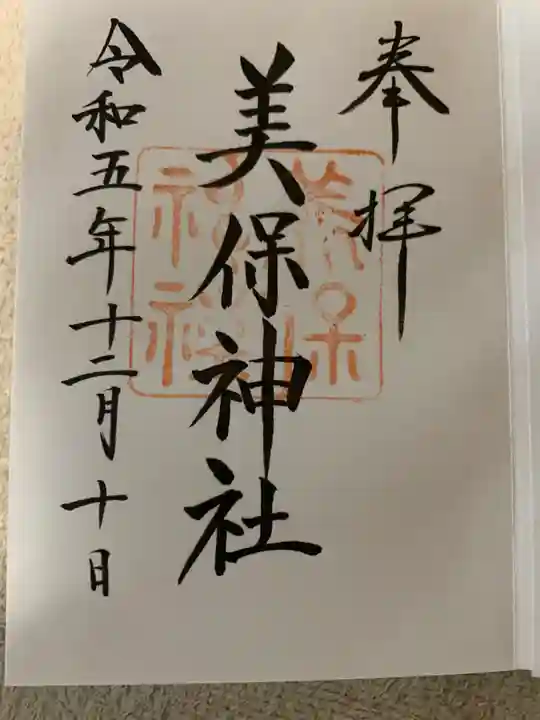 奉拝
美保神社
美保神社
令和五年十二月十日